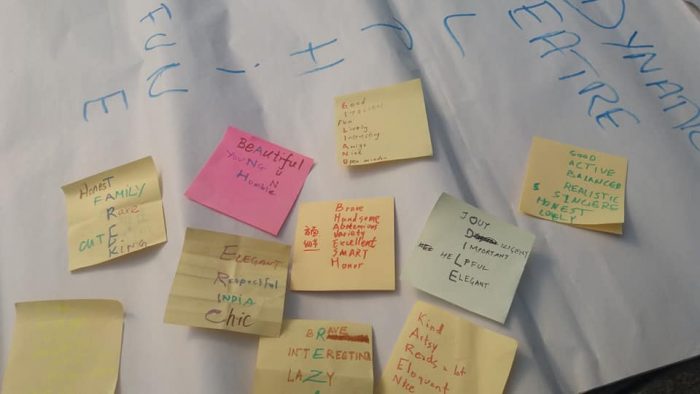 DYNAMIC
EATRE
L
P
H
i
FUN
E
Good
ITALIAN
Fun
Lively
Interesting
Amigo
Kind
Open minded
BEAUTiful
YOUNG U
Humble N
GOOD
ACTIVE
BALANCED
S REALISTIC
SINCERE
HONEST
LOVELY
HonesT
FAMILY
RARE
CUTE
KING
Brave
Handsome
Abstemious
Variety
Excellent
SMART
Honor
JOUY
DILIGENT
IMPORTANT
HELPFUL
ELEGANT
ELEGANT
RESPECTFUL
INDIA
Chic
BRAVE
INTERESTING
LAZY
Kind
Artsy
Reads a lot
Eloquent
Nice